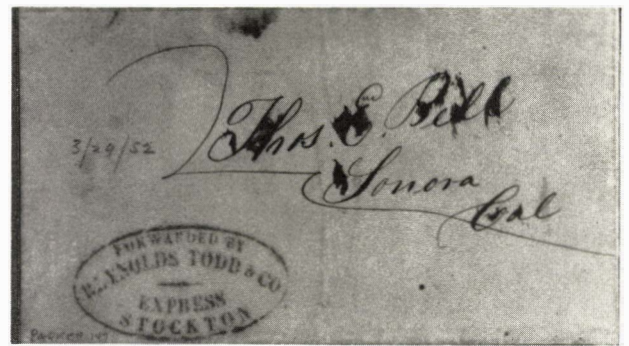 Thos. E. Bell
3/29/52
Sonora
Cal
FORWARDED BY
REYNOLDS TODD & CO
EXPRESS
STOCKTON